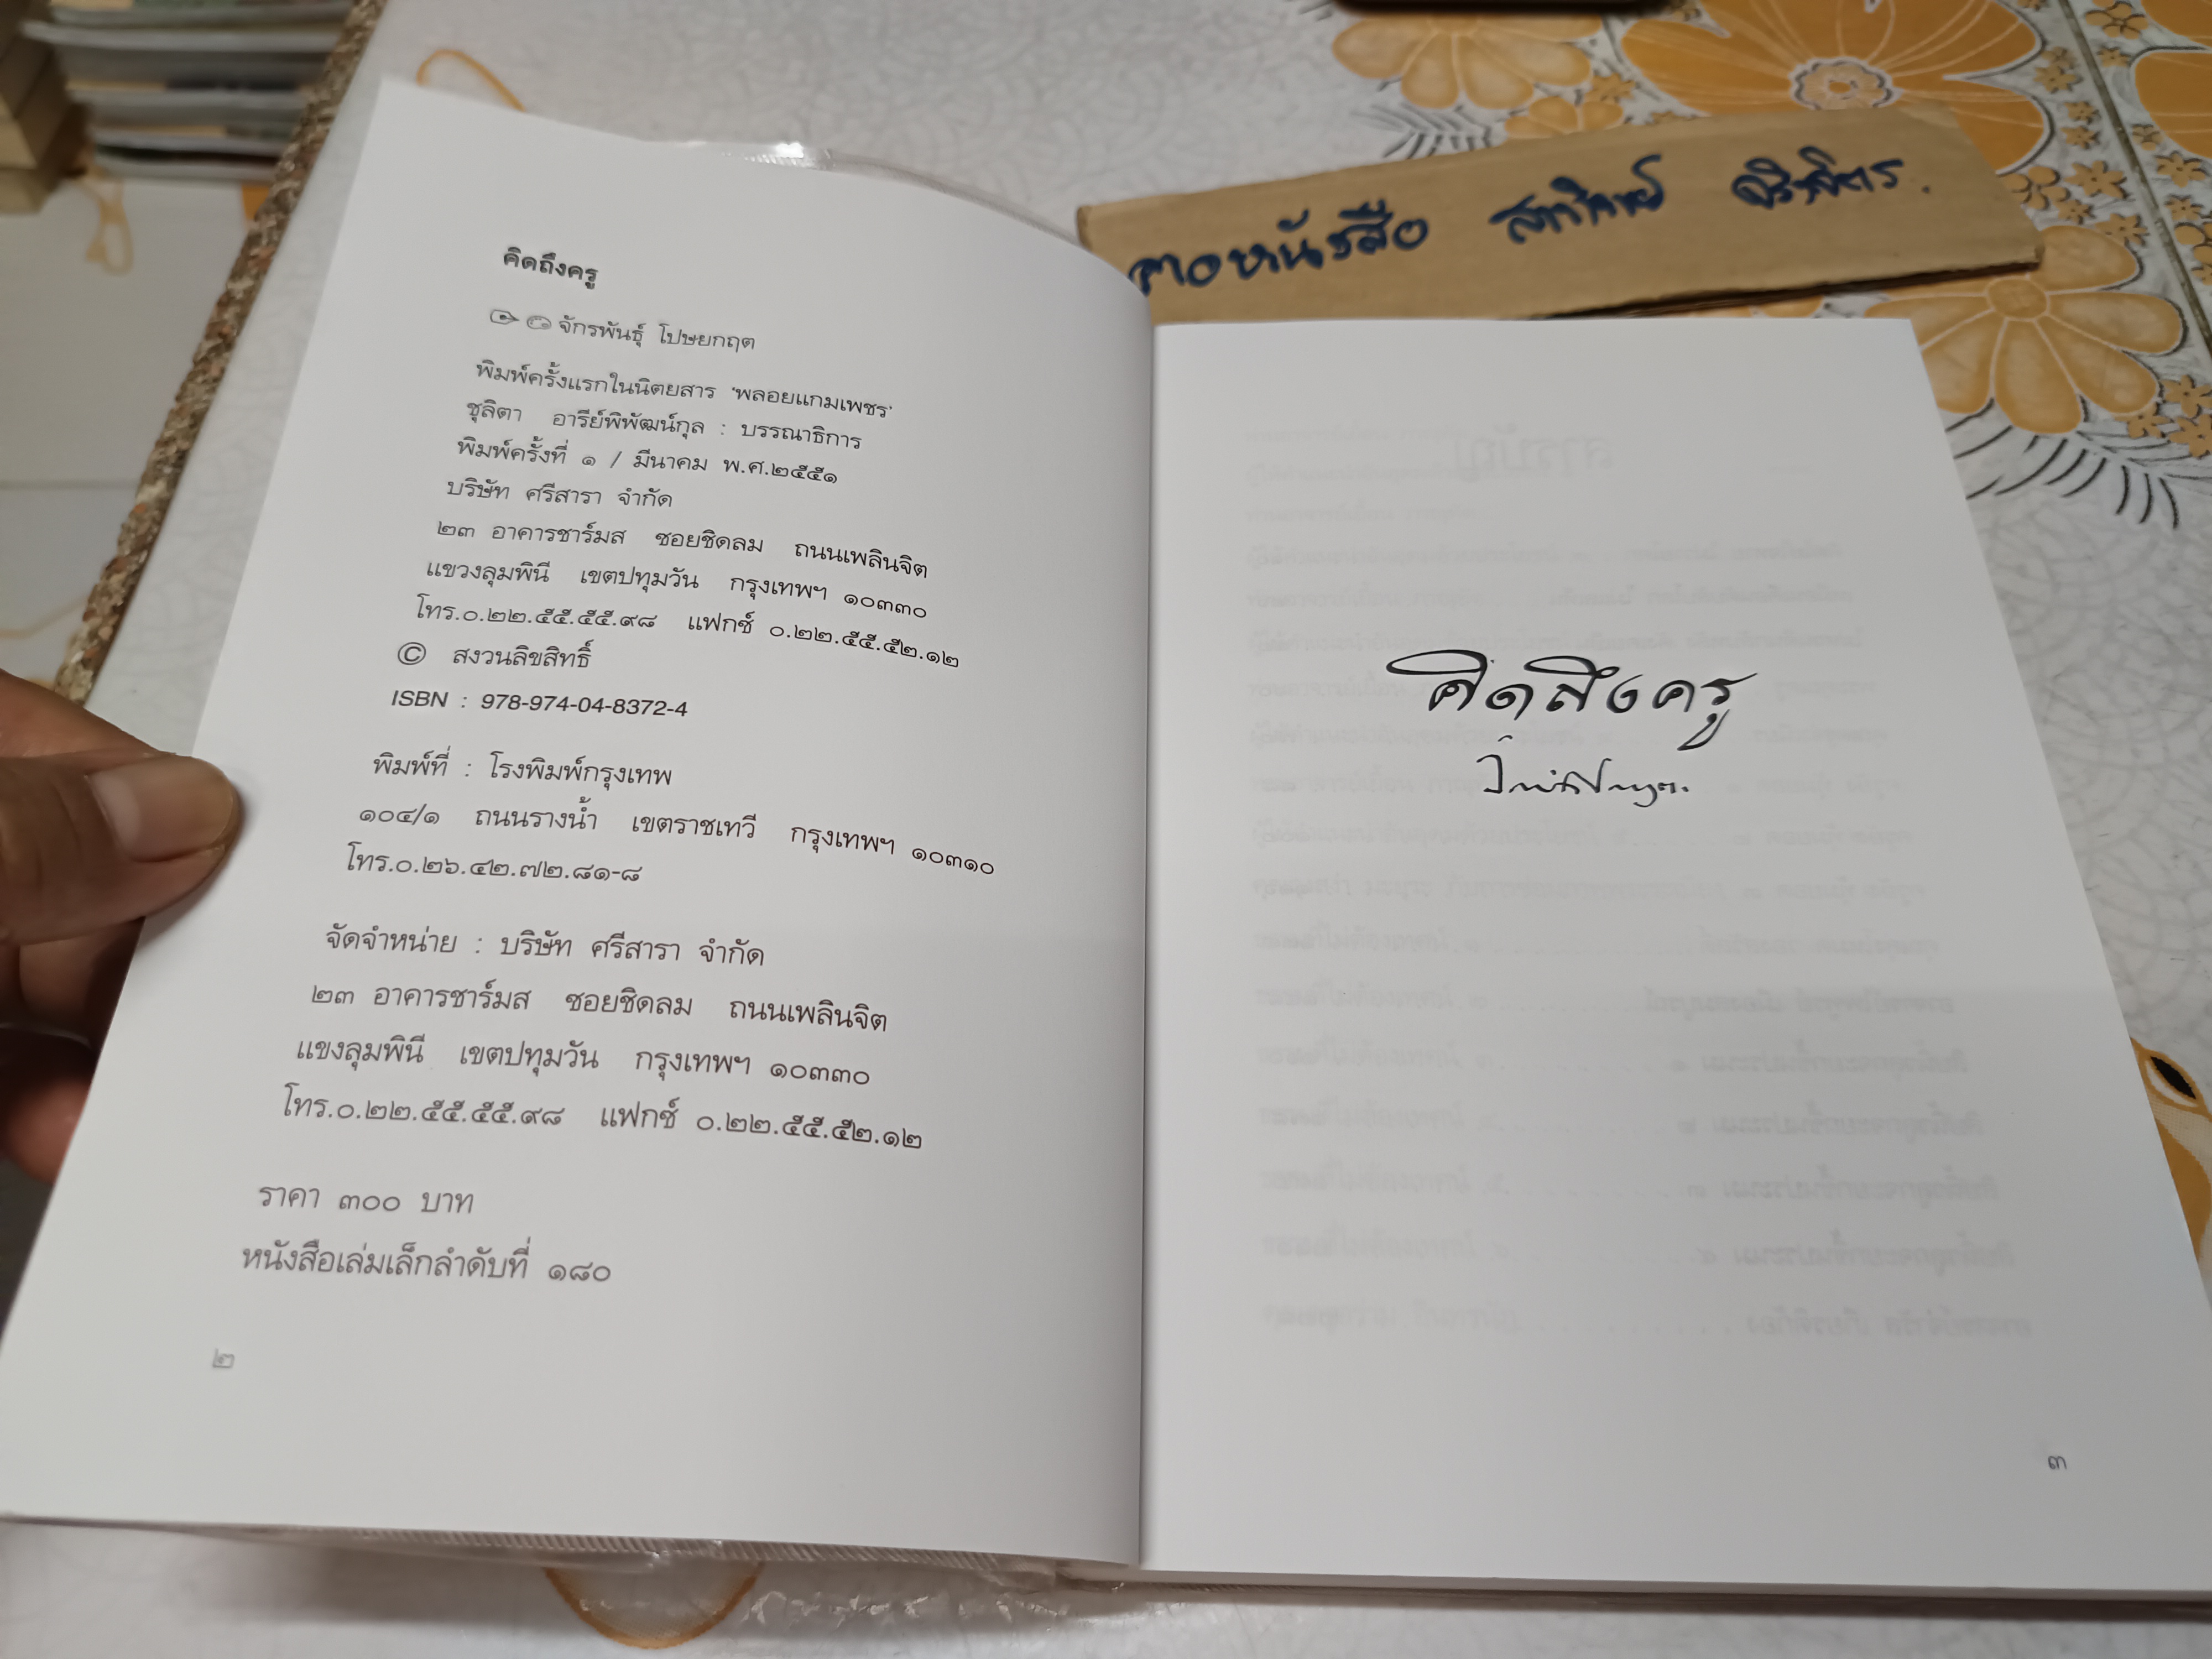 คิดถึงครู
จักรพันธุ์ โปษยกฤต
พิมพ์ครั้งแรกในนิตยสาร 'พลอยแกมเพชร'
ชุลิตา อารีย์พิพัฒน์กุล : บรรณาธิการ
พิมพ์ครั้งที่ ๑ / มีนาคม พ.ศ.๒๕๕๑
บริษัท ศรีสารา จำกัด
๒๓ อาคารชาร์มส ซอยชิดลม ถนนเพลินจิต
แขวงลุมพินี เขตปทุมวัน กรุงเทพฯ ๑๐๓๓๐
โทร.๐.๒๒.๕๕.๕๕.๙๘ แฟกซ์ ๐.๒๒.๕๕.๕๒.๑๒
© สงวนลิขสิทธิ์
ISBN : 978-974-04-8372-4
พิมพ์ที่ : โรงพิมพ์กรุงเทพ
๑๐๔/๑ ถนนรางน้ำ เขตราชเทวี กรุงเทพฯ ๑๐๓๑๐
โทร.๐.๒๖.๔๒.๗๒.๘๑-๘
จัดจำหน่าย : บริษัท ศรีสารา จำกัด
๒๓ อาคารชาร์มส ซอยชิดลม ถนนเพลินจิต
แขงลุมพินี เขตปทุมวัน กรุงเทพฯ ๑๐๓๓๐
โทร.๐.๒๒.๕๕.๕๕.๙๘ แฟกซ์ ๐.๒๒.๕๕.๕๒.๑๒
ราคา ๓๐๐ บาท
หนังสือเล่มเล็กลำดับที่ ๑๘๐
๒
คิดถึงครู
๓